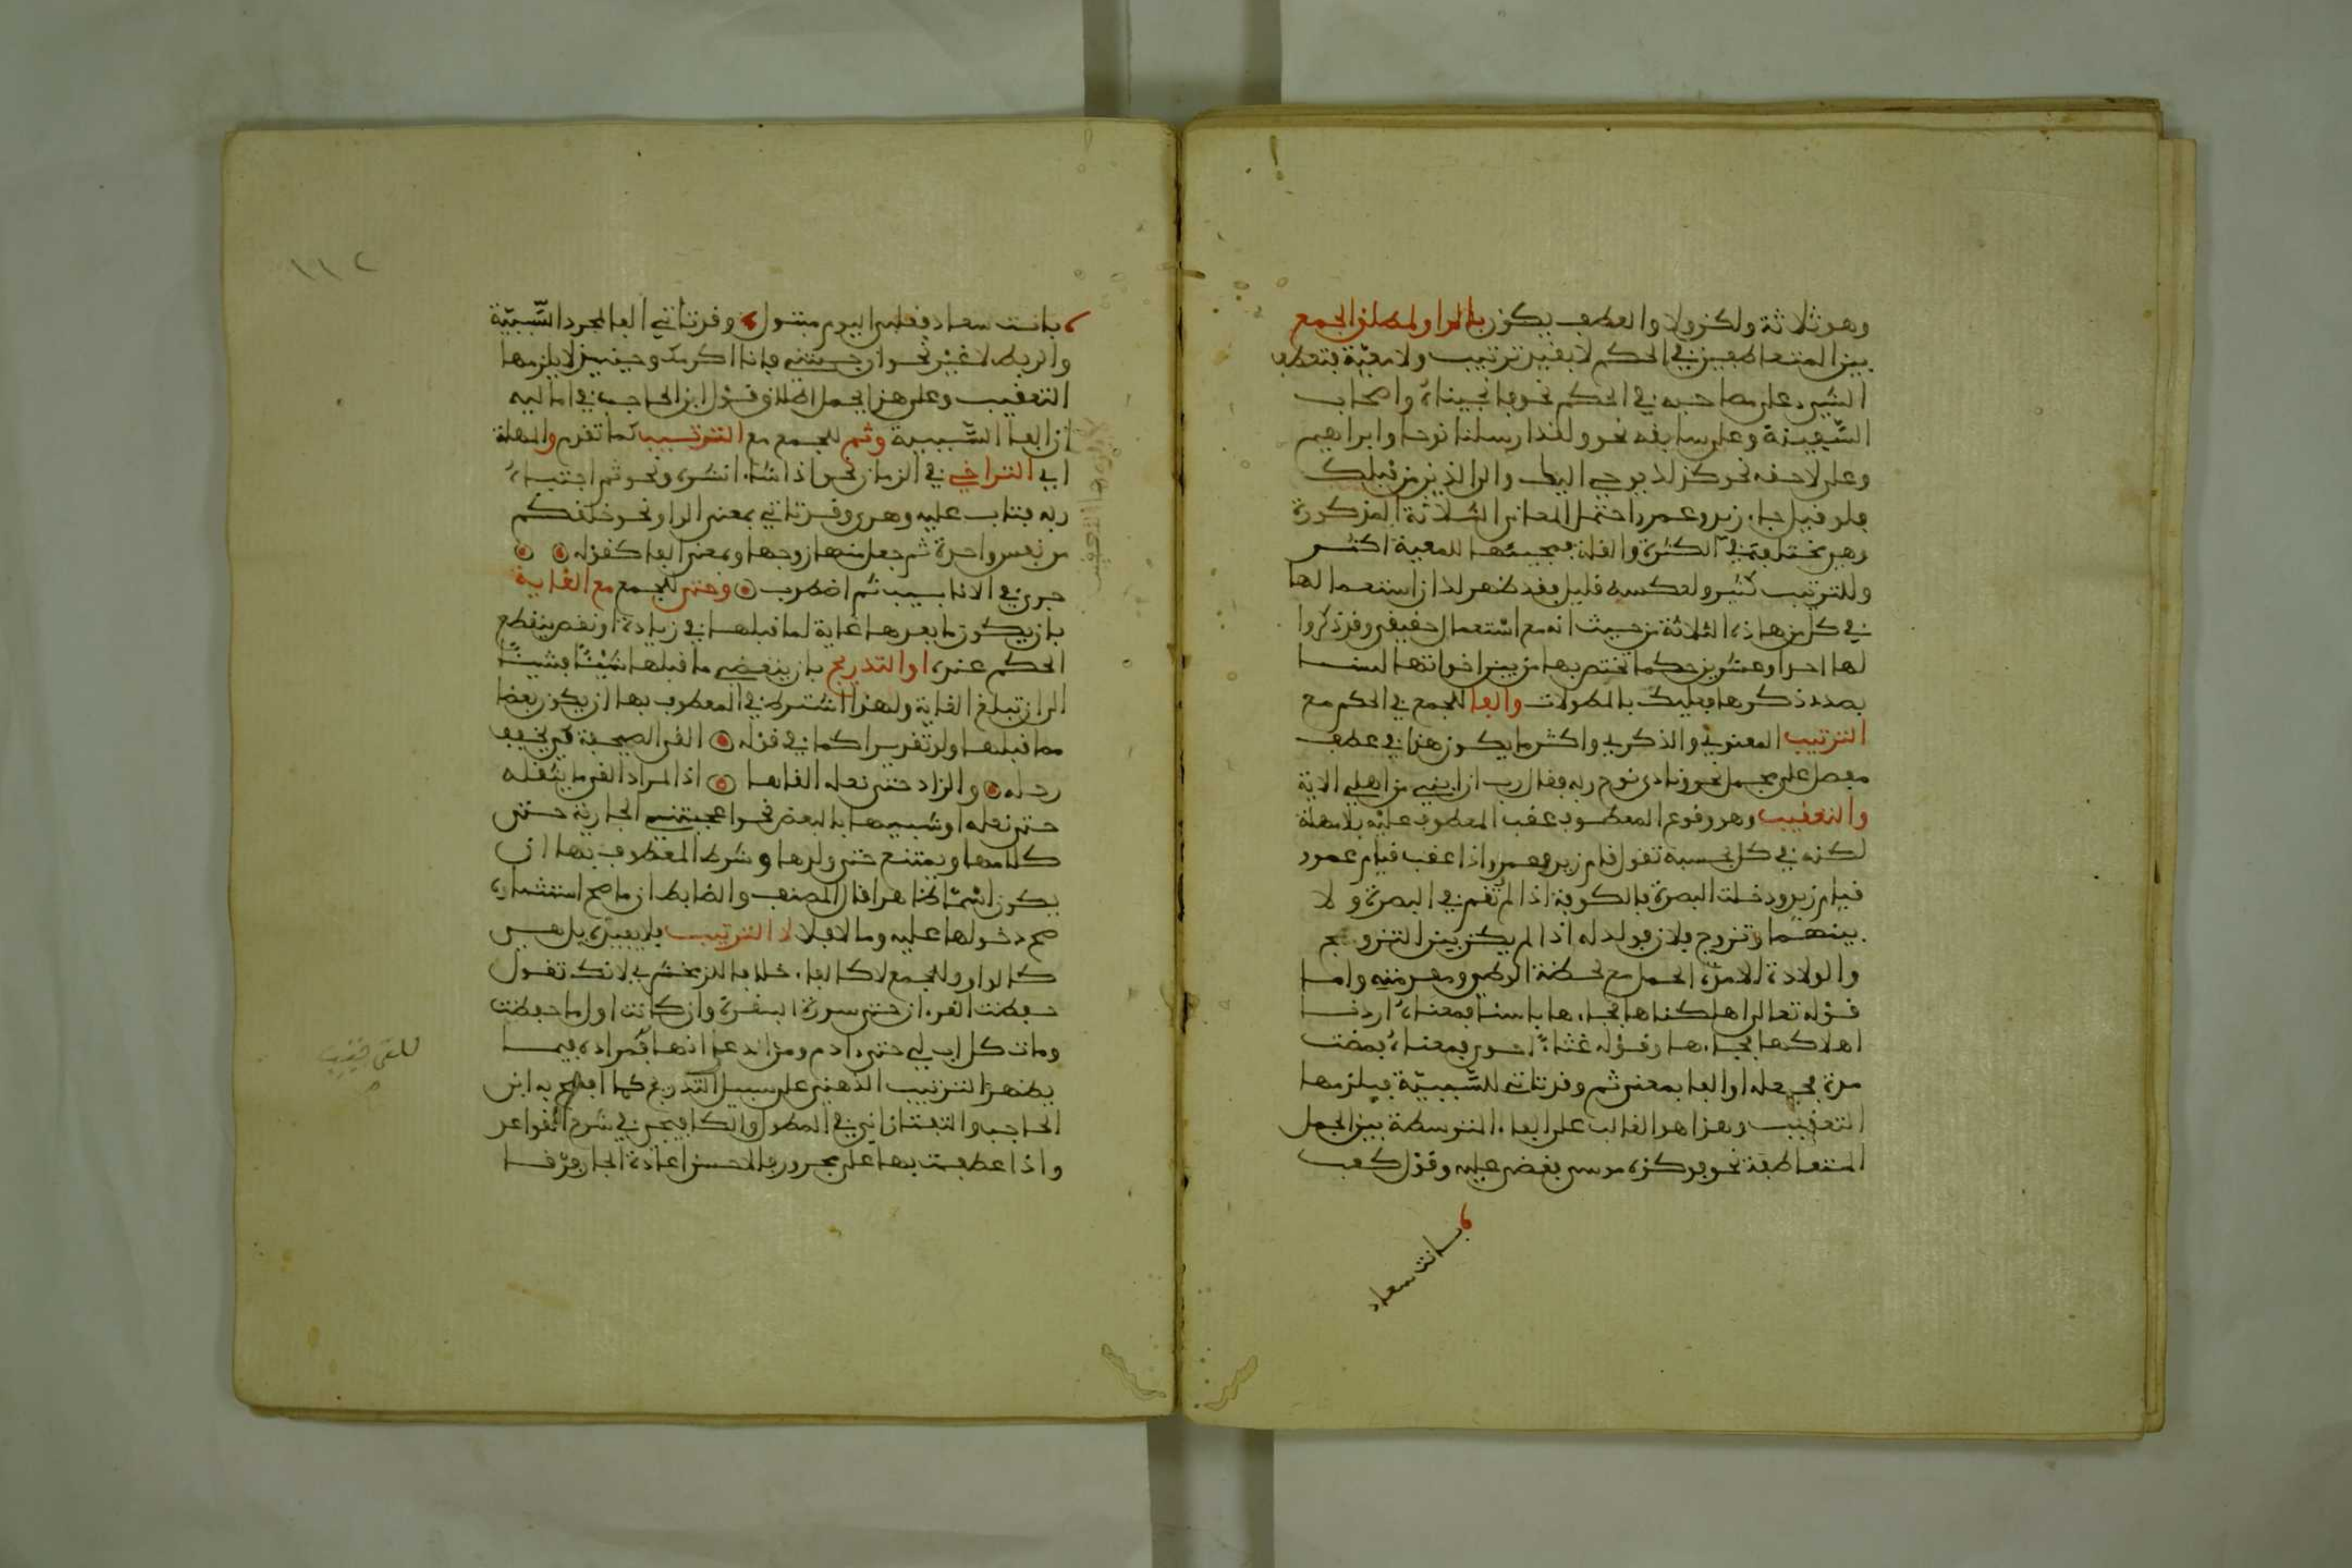 وهو ثلاثة ولكن ولا والعطف يكون بالواو لمطلق الجمع
بين المتعاطفين في الحكم لا بقيد ترتيب ولا معية فتعطف
الشيء على مصاحبه في الحكم نحو فانجيناه واصحاب
السفينة وعلى سابقه نحو ولقد ارسلنا نوحا وابراهيم
وعلى لاحقه نحو كذلك يوحي اليك والى الذين من قبلك
فلو قيل جاء زيد وعمرو احتمل المعاني الثلاثة المذكورة
وهي مختلفة في الكثرة والقلة فمجيئها للمعية اكثر
وللترتيب كثير ولعكسه قليل فقد ظهر لك ان استعمالها
في كل من هذه الثلاثة من حيث انه مع استعمال حقيقي وقد ذكروا
لها احدا وعشرين حكما تختص بها من بين اخواتها لسنا
بصدد ذكرها فعليك بالمطولات والفا للجمع في الحكم مع
الترتيب المعنوي والذكري واكثر ما يكون هذا في عطف
مفصل على مجمل نحو ونادى نوح ربه فقال رب ان ابني من اهلي الاية
والتعقيب وهو وقوع المعطوف عقب المعطوف عليه بلا مهلة
لكنه في كل بحسبه تقول قام زيد فعمرو اذا عقب قيام عمرو
قيام زيد ودخلت البصرة فالكوفة اذا لم تقم في البصرة ولا
بينهما وتزوج فلان فولد له اذا لم يكن بين التزوج
والولادة الا مدة الحمل مع لحظة الوطي ومقدمته واما
قوله تعالى اهلكناها فجاءها باسنا فمعناه اردنا
اهلاكها فجاءها وقوله غثاء احوى فمعناه فمضت
مدة فجعله او الفا بمعنى ثم وقد تاتي للسببية فيلزمها
التعقيب وهذا هو الغالب على الفاء المتوسطة بين الجمل
المتعاطفة نحو فوكزه موسى فقضى عليه وقول كعب
بانت سعاد
١١٢
بانت سعاد فقلبي اليوم متبول وقد تاتي الفا لمجرد السببية
والربط لا غير نحو ان جيتني فانا اكرمك وحينيذ لا يلزمها
التعقيب وعلى هذا يحمل اطلاق قول ابن الحاجب في اماليه
ان الفا السببية وثم للجمع مع الترتيب كما تقدم والمهلة
اي التراخي في الزمان نحو اذا شاء انشره ونحو ثم اجتباه
ربه فتاب عليه وهدى وقد تاتي بمعنى الواو نحو خلقكم
من نفس واحدة ثم جعل منها زوجها وبمعنى الفا كقوله
جرى في الانابيب ثم اضطرب وحتى للجمع مع الغاية
بان يكون ما بعدها غاية لما قبلها في زيادة او نقص ينقطع
الحكم عنده او التدريج بان ينقضي ما قبلها شيئا فشيئا
الى ان تبلغ الغاية ولهذا اشترط في المعطوف بها ان يكون بعضا
مما قبلها ولو تقديرا كما في قوله القى الصحيفة كي يخفف
رحله والزاد حتى نعله القاها اذ المراد القى ما يثقله
حتى نعله او شبيها بالبعض نحو اعجبتني الجارية حتى
كلامها ويمتنع حتى ولدها وشرط المعطوف بها ان
يكون اسما ظاهرا قال المصنف والضابط ان ما صح استثناؤه
صح دخولها عليه وما لا فلا لا الترتيب فلا يفيده بل هي
كالواو للجمع لا كالفاء خلافا للزمخشري لانك تقول
حفظت القرءان حتى سورة البقرة وان كانت اول ما حفظت
ومات كل اب لي حتى ءادم ومن ادعى انها فمراده فيما
يظهر الترتيب الذهني على سبيل التدريج كما افصح به ابن
الحاجب والتفتازاني في المطول والكافيجي في شرح القواعد
واذا عطفت بها على مجرور فالاحسن اعادة الجار فرقا